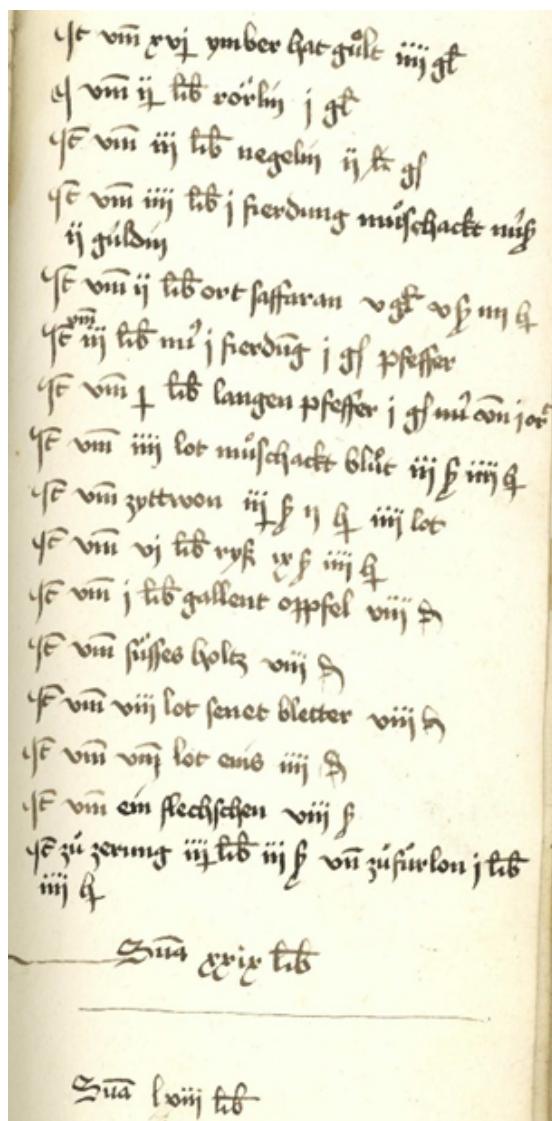 It vm̄ xvj ymber hat gůlt iiij gl
It vm̄ ij lib rörlin j gl
It vm̄ iij lib negelin ij gl
It vm̄ iiij lib j fierdung můschackt nůß
ij guldin
It vm̄ ij lib ort saffaran v gl v ß iiij h
It vm̄ iij lib mī j fierdūg j gl pfeffer
It vm̄ j lib langen pfeffer j gl mī j ort
It vm̄ iiij lot můschackt blůt iij ß iiij h
It vm̄ zyttwon iij ß ij h iiij lot
It vm̄ vj lib ryß ix ß iiij h
It vm̄ j lib gallent oppfel viij d
It vm̄ süsses holtz viij d
It vm̄ viij lot senet bletter viij d
It vm̄ lot enis iiij d
It vm̄ ein flechschen viij ß
It zů zerung iij lib iij ß vn̄ zů fůrlon j lib
iiij h
Sūa xxix lib
Sūa lviij lib